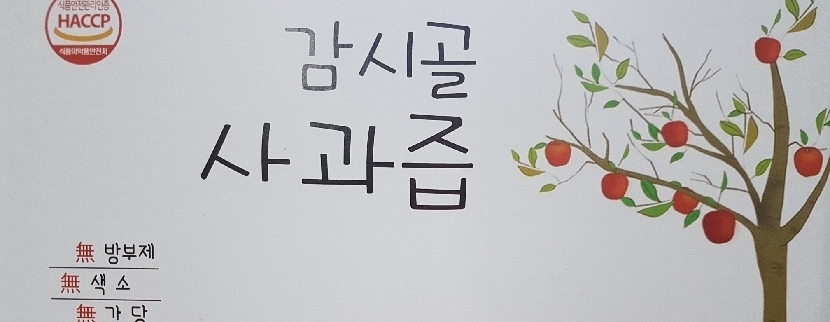 식품안전관리인증
HACCP
식품의약품안전처
감시골
사과즙
無 방부제
無 색소
無 가당